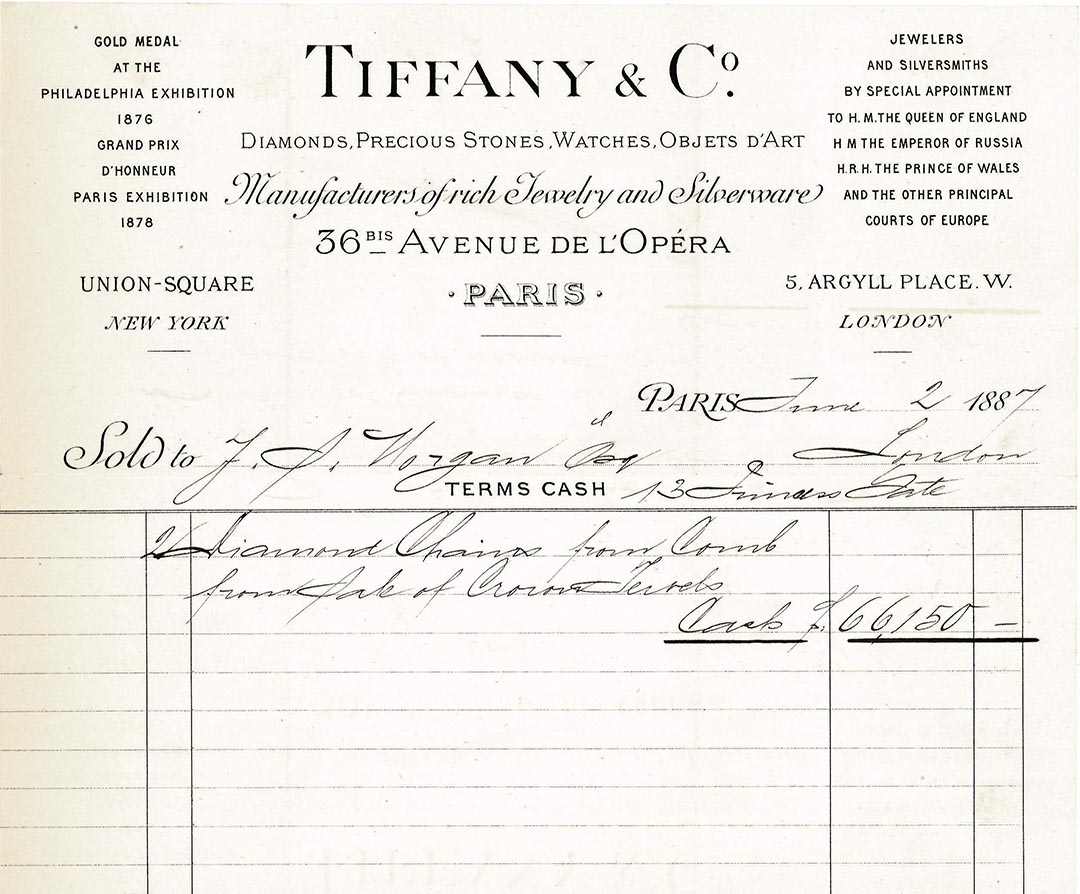 GOLD MEDAL
AT THE
PHILADELPHIA EXHIBITION
1876
GRAND PRIX
D'HONNEUR
PARIS EXHIBITION
1878
UNION-SQUARE
NEW YORK
TIFFANY & Co.
DIAMONDS, PRECIOUS STONES, WATCHES, OBJETS D'ART
Manufacturers of rich Jewelry and Silverware
36 BIS AVENUE DE L'OPÉRA
· PARIS ·
JEWELERS
AND SILVERSMITHS
BY SPECIAL APPOINTMENT
TO H. M. THE QUEEN OF ENGLAND
H M THE EMPEROR OF RUSSIA
H.R.H. THE PRINCE OF WALES
AND THE OTHER PRINCIPAL
COURTS OF EUROPE
5, ARGYLL PLACE. W.
LONDON
PARIS June 2 1887
Sold to J. S. Morgan Esq London
TERMS CASH 13 Princess Gate
2 Diamond Chains from Comb
from Sale of Crown Jewels
Cash f. 66,150 –